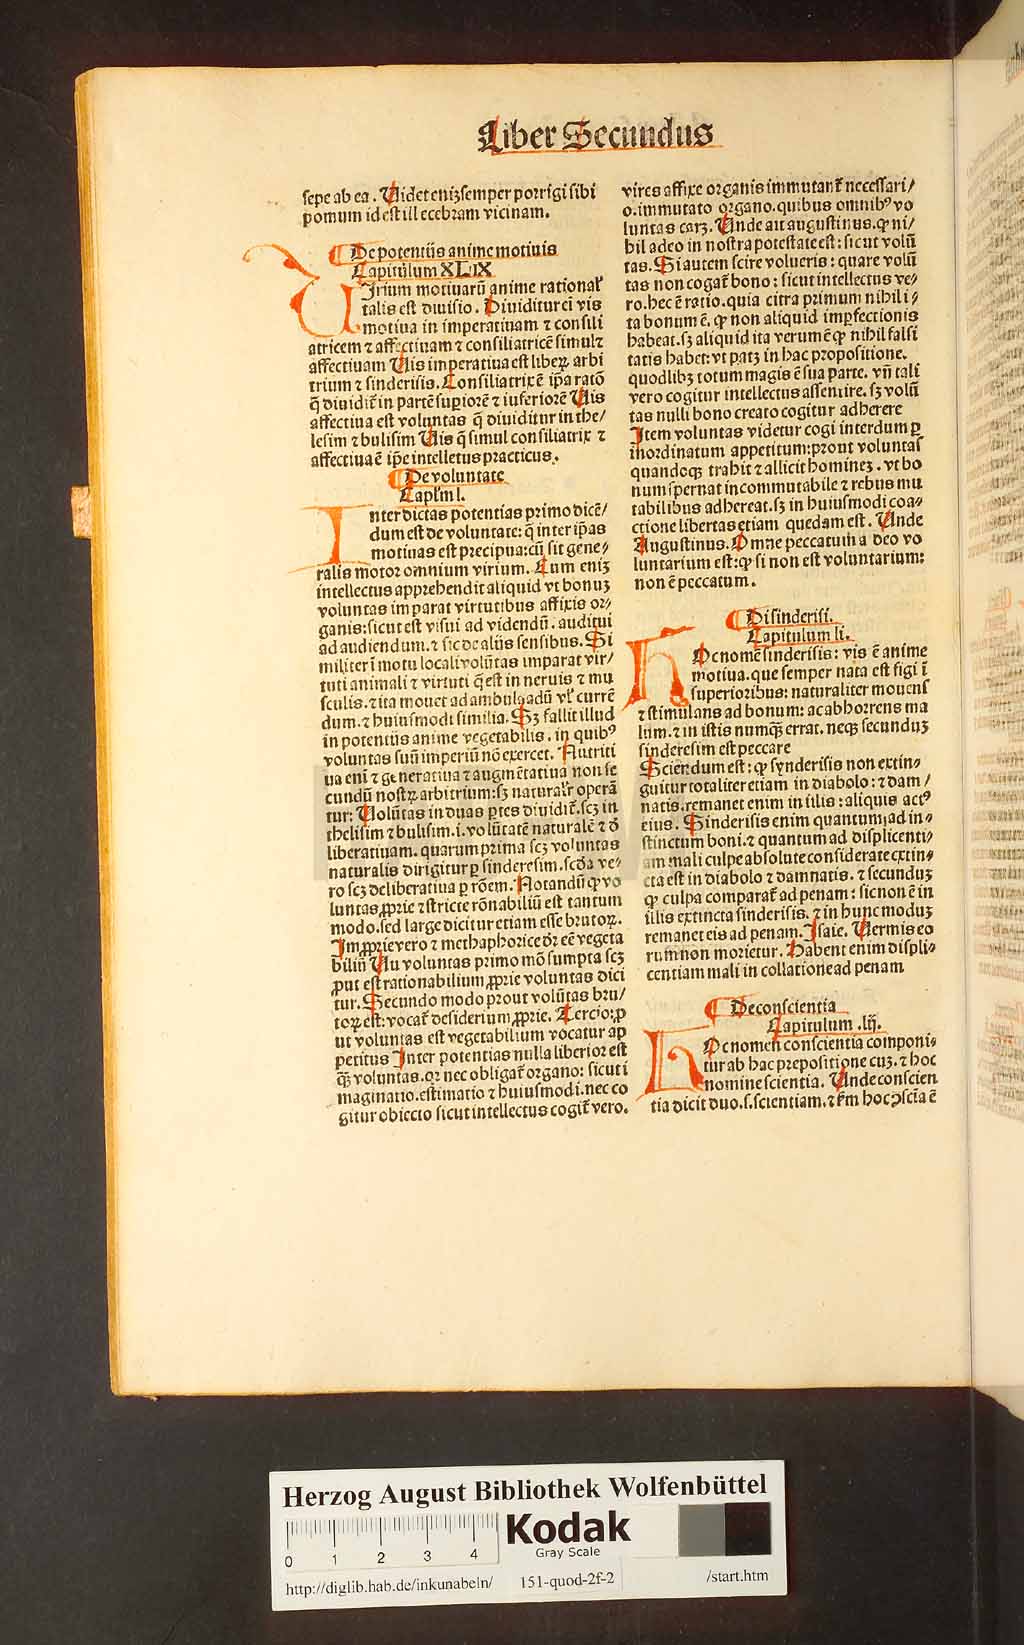 Liber Secundus
sepe ab ea. Videt eniꝫ semper porrigi sibi
pomum id est illecebram vicinam.
De potentijs anime motiuis
Capitulum XLIX
Uirium motiuarū anime rationalꝰ
talis est diuisio. Diuiditur ei vis
motiua in imperatiuam ⁊ consili
atricem ⁊ affectiuam ⁊ consiliatricē simul ⁊
affectiuam Uis imperatiua est liberꝝ arbi
trium ⁊ sinderisis. Consiliatrix ē ip̄a ratō
q̄ diuidit̄ in partē superiorē ⁊ inferiorē Uis
affectiua est voluntas q̄ diuiditur in the/
lesim ⁊ bulisim Uis q̄ simul consiliatrix ⁊
affectiua ē ip̄e intelletus practicus.
De voluntate
Caplm̄ l.
Inter dictas potentias primo dicē/
dum est de voluntate: q̄ inter ip̄as
motiuas est precipua: cū sit gene⸗
ralis motor omnium virium. Cum eniꝫ
intellectus apprehendit aliquid vt bonuꝫ
voluntas imparat virtutibus affixis or⸗
ganis: sicut est visui ad videndū. auditui
ad audiendum. ⁊ sic de alijs sensibus. Si
militer ī motu locali volūtas imparat vir/
tuti animali ⁊ virtuti q̄ est in neruis ⁊ mu
sculis. ⁊ ita mouet ad ambulādū vl̓ currē
dum. ⁊ huiusmodi similia. Sꝫ fallit illud
in potentijs anime vegetabilis. in quibꝰ
voluntas suū imperiū nō exercet. Nutriti
ua eni ⁊ generatiua ⁊ augmētatiua non se
cundū nostꝝ arbitrium: sꝫ naturalr̓ operā
tur: Volūtas in duas p̄tes diuidit̄. scꝫ in
thelisim ⁊ bulisim. i. volūtatē naturalē ⁊ d̄
liberatiuam. quarum prima scꝫ voluntas
naturalis dirigitur ꝑ sinderesim. scd̄a ve⸗
ro scꝫ deliberatiua ꝑ rōem. Notandū ꝙ vo
luntas ꝓprie ⁊ stricte rōnabiliū est tantum
modo. sed large dicitur etiam esse brutoꝝ.
Imꝓprie vero ⁊ methaphorice dr̄ eē vegeta
biliū Uñ voluntas primo mō sumpta scꝫ
ꝓut est rationabilium ꝓprie voluntas dici
tur. Secundo modo prout volūtas bru/
toꝝ est: vocat̄ desiderium ꝓprie. Tercio: ꝓ
ut voluntas est vegetabilium vocatur ap
petitus Inter potentias nulla liberior est
ꝙ̄ voluntas. qꝛ nec obligat̄ organo: sicut i
maginatio. estimatio ⁊ huiusmodi. nec co
gitur obiecto sicut intellectus cogit̄ vero.
vires affixe organis immutant̄ necessari/
o. immutato organo. quibus omnibꝰ vo
luntas caꝫ. Unde ait augustinus. ꝙ ni/
hil adeo in nostra potestate est: sicut volū
tas. Si autem scire volueris: quare volū
tas non cogat̄ bono: sicut intellectus ve⸗
ro. hec ē ratio. quia citra primum nihil i⸗
ta bonum ē. ꝙ non aliquid imꝑfectionis
habeat. sꝫ aliquid ita verum ē ꝙ nihil falsi
tatis habet: vt patꝫ in hac propositione.
quodlibꝫ totum magis ē sua parte. vñ tali
vero cogitur intellectus assentire. sꝫ volū
tas nulli bono creato cogitur adherere
Item voluntas videtur cogi interdum ꝑ
inordinatum appetitum: prout voluntas
quandoqꝫ trahit ⁊ allicit homineꝫ. vt bo
num spernat incommutabile ⁊ rebus mu
tabilibus adhereat. sꝫ in huiusmodi coa⸗
ctione libertas etiam quedam est. Unde
Augustinus. Omne peccatum a deo vo
luntarium est: ꝙ si non est voluntarium:
non ē peccatum.
Di sinderisi.
Capitulum li.
Hoc nomē sinderisis: vis ē anime
motiua. que semper nata est figi ī
superioribus: naturaliter mouens
⁊ stimulans ad bonum: ac abhorrens ma
lum. ⁊ in istis numqꝫ errat. neqꝫ secunduꝫ
sinderesim est peccare
Sciendum est: ꝙ synderisis non extin⸗
guitur totaliter etiam in diabolo: ⁊ dam/
natis. remanet enim in illis: aliquis actꝰ
eius. Sinderisis enim quantum ad in⸗
stinctum boni. ⁊ quantum ad displicenti⸗
am mali culpe absolute considerate extin⸗
cta est in diabolo ⁊ damnatis. ⁊ secunduꝫ
ꝙ culpa comparat̄ ad penam: sic non ē in
illis extincta sinderisis. ⁊ in hunc moduꝫ
remanet eis ad penam. Isaie. Vermis eo
rum non morietur. Habent enim displi⸗
centiam mali in collatione ad penam
De conscientia
Capitulum .lij.
Hoc nomen conscientia componi⸗
tur ab hac prepositione cuꝫ. ⁊ hoc
nomine scientia. Unde conscien
tia dicit duo. s. scientiam. ⁊ s̄m hoc ɔscīa ē
Herzog August Bibliothek Wolfenbüttel
0 1 2 3 4
Kodak
Gray Scale
http://diglib.hab.de/inkunabeln/ 151-quod-2f-2 /start.htm